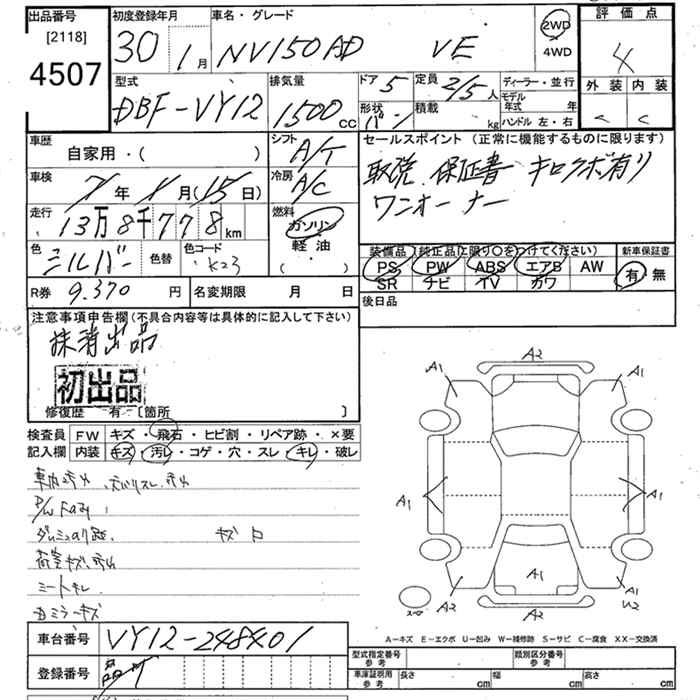 出品番号
[2118]
4507
初度登録年月
30 1月
車名・グレード
NV150AD VE
2WD
4WD
評価点
4
外装 内装
c c
型式
DBF-VY12
排気量
1500 cc
ドア 5
定員 2/5人
形状 バン
積載 kg
ディーラー・並行
モデル年式 年
ハンドル 左・右
車歴
自家用・( )
シフト
A/T
車検
7年 1月(15日)
冷房
A/C
走行
13万8千778km
燃料
ガソリン
軽油
( )
色
シルバー
色替
色コード
K23
R券 9.370円
名変期限 月 日
セールスポイント (正常に機能するものに限ります)
取説 保証書 キロクボ有り
ワンオーナー
装備品 (純正品に限り○をつけてください)
新車保証書
PS PW ABS エアB AW
有・無
SR ナビ TV カワ
後日品
注意事項申告欄(不具合内容等は具体的に記入して下さい)
抹消出品
初出品
修復歴 有 〔箇所 〕
検査員 FW キズ・飛石・ヒビ割・リペア跡・×要
記入欄 内装 キズ・汚レ・コゲ・穴・スレ・キレ・破レ
キズ
シートキレ
ミラーキズ
A2
A1 A1
A1 A1
A1
A1 A1
A2 A2 U2
A-キズ E-エクボ U-凹み W-補修跡 S-サビ C-腐食 XX-交換済
車台番号 VY12-248401
登録番号
型式指定番号 参考
類別区分番号 参考
車庫証明用 参考 長さ cm 幅 cm 高さ cm